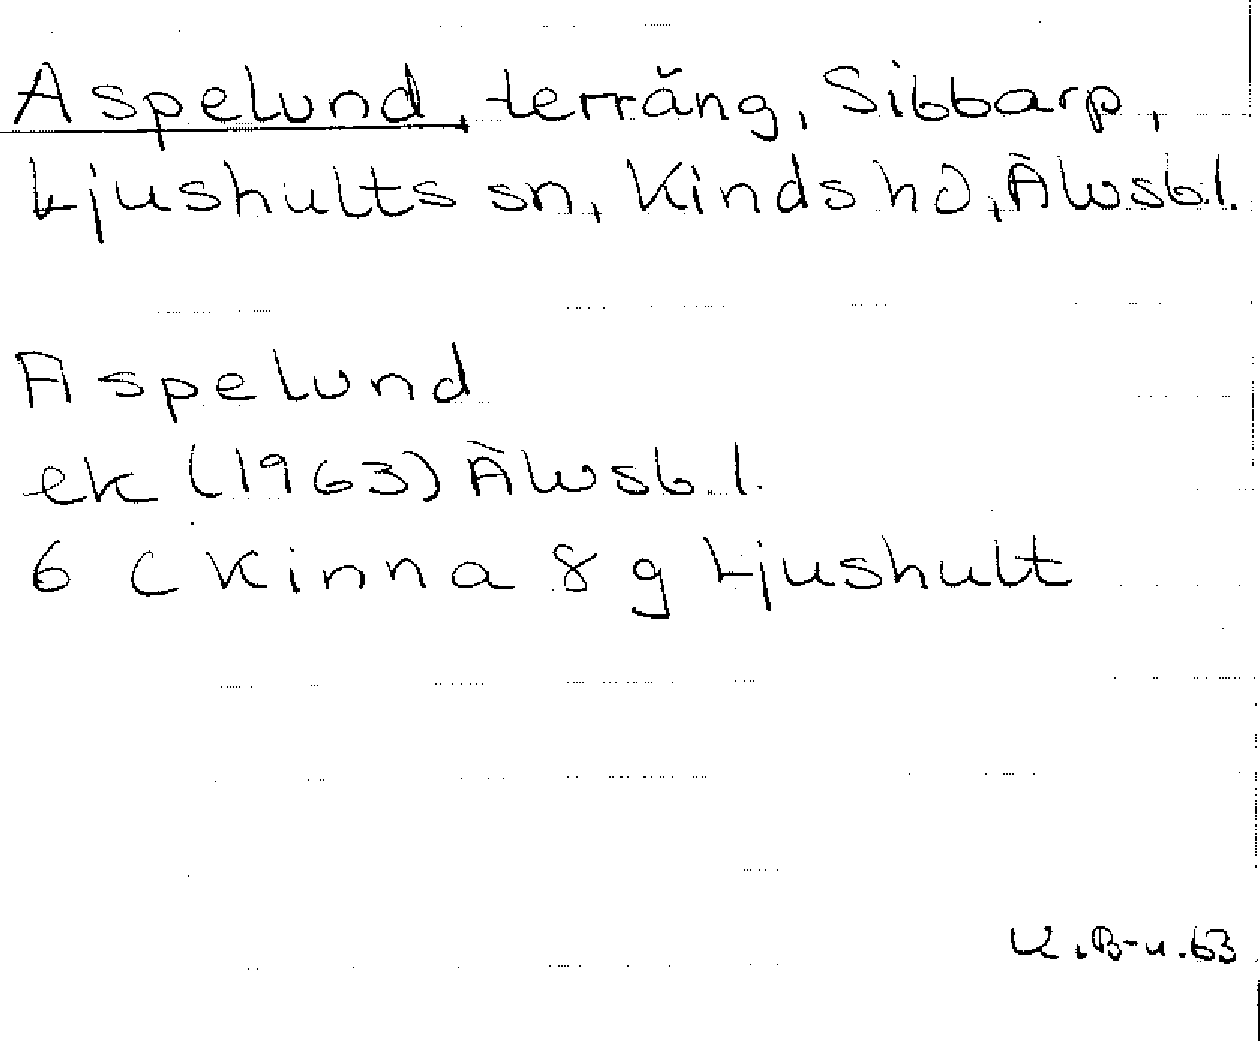 Aspelund, terräng, Sibbarp,
Ljushults sn, Kinds hd, Älvsb.l.
Aspelund
ek (1963) Älvsb.l.
6 C Kinna 8 g Ljushult
K.B-n.63